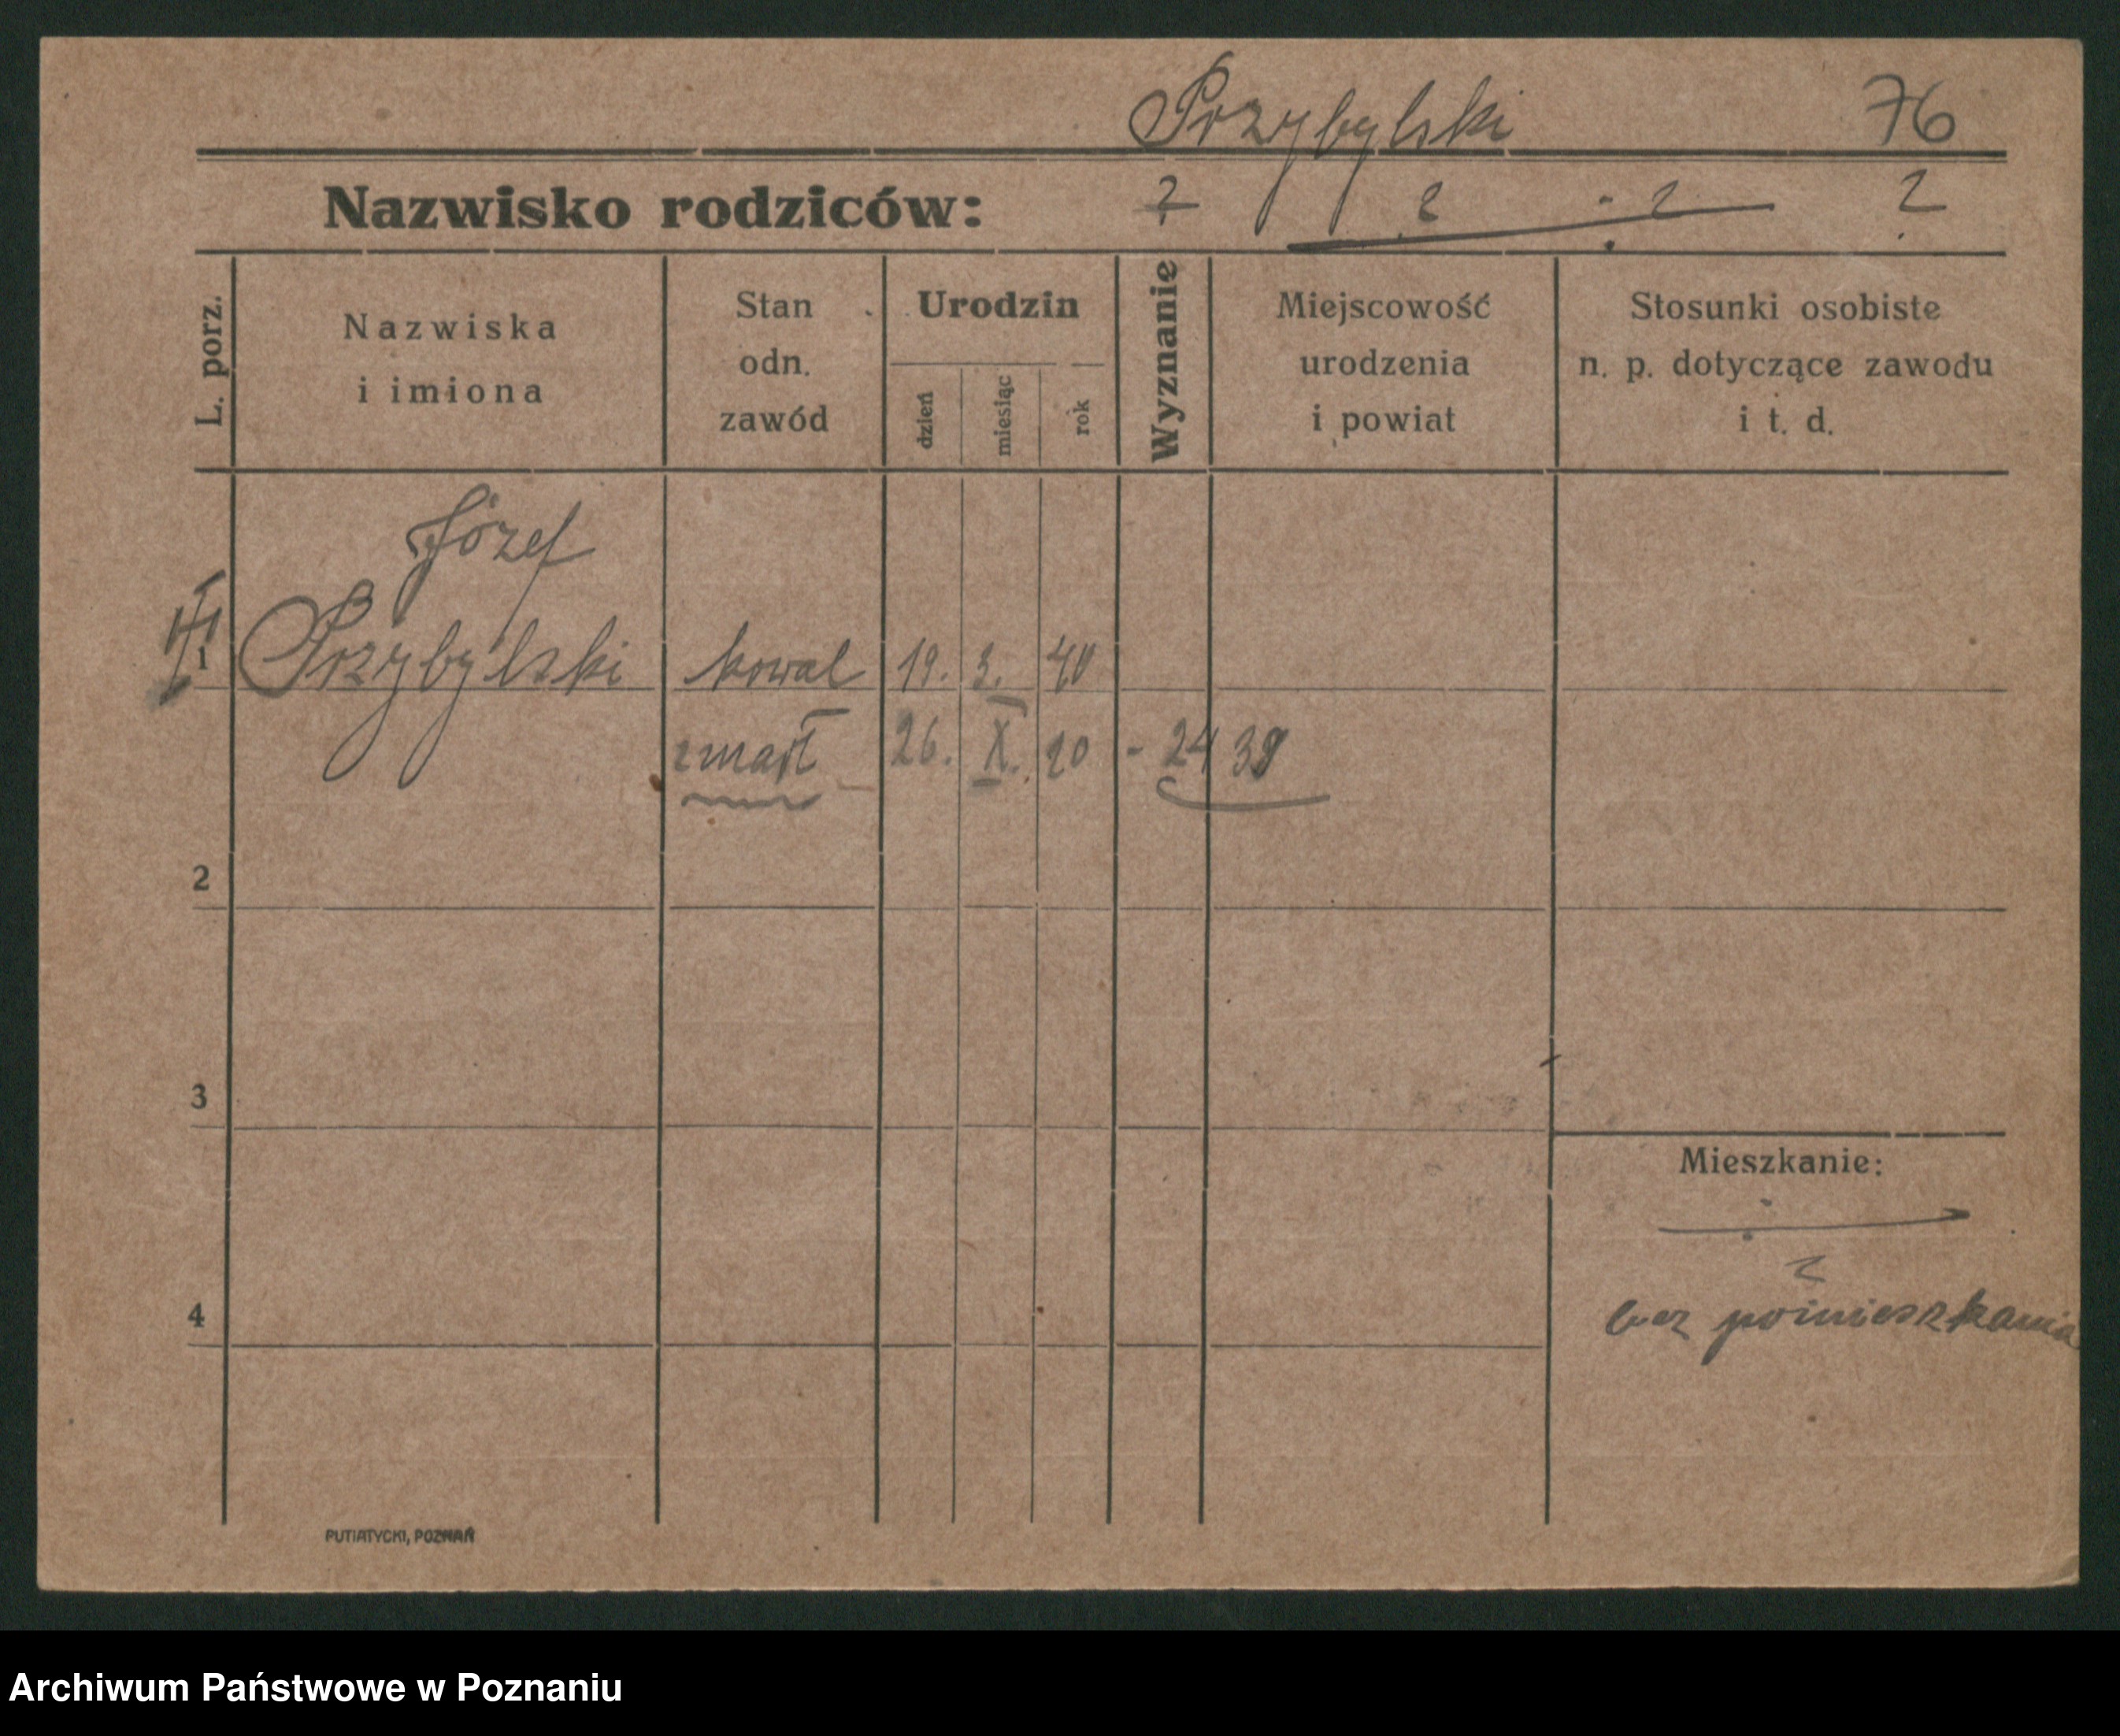 Przybylski 76
Nazwisko rodziców: ? ? ? ?
L. porz.
Nazwiska
i imiona
Stan
odn.
zawód
Urodzin
dzień
miesiąc
rok
Wyznanie
Miejscowość
urodzenia
i powiat
Stosunki osobiste
n. p. dotyczące zawodu
i t. d.
Józef
1 Przybylski kowal 19. 3. 40
zmarł 26. X. 20 - 2439
2
3
Mieszkanie:
4 bez pomieszkania
PUTIATYCKI, POZNAŃ
Archiwum Państwowe w Poznaniu